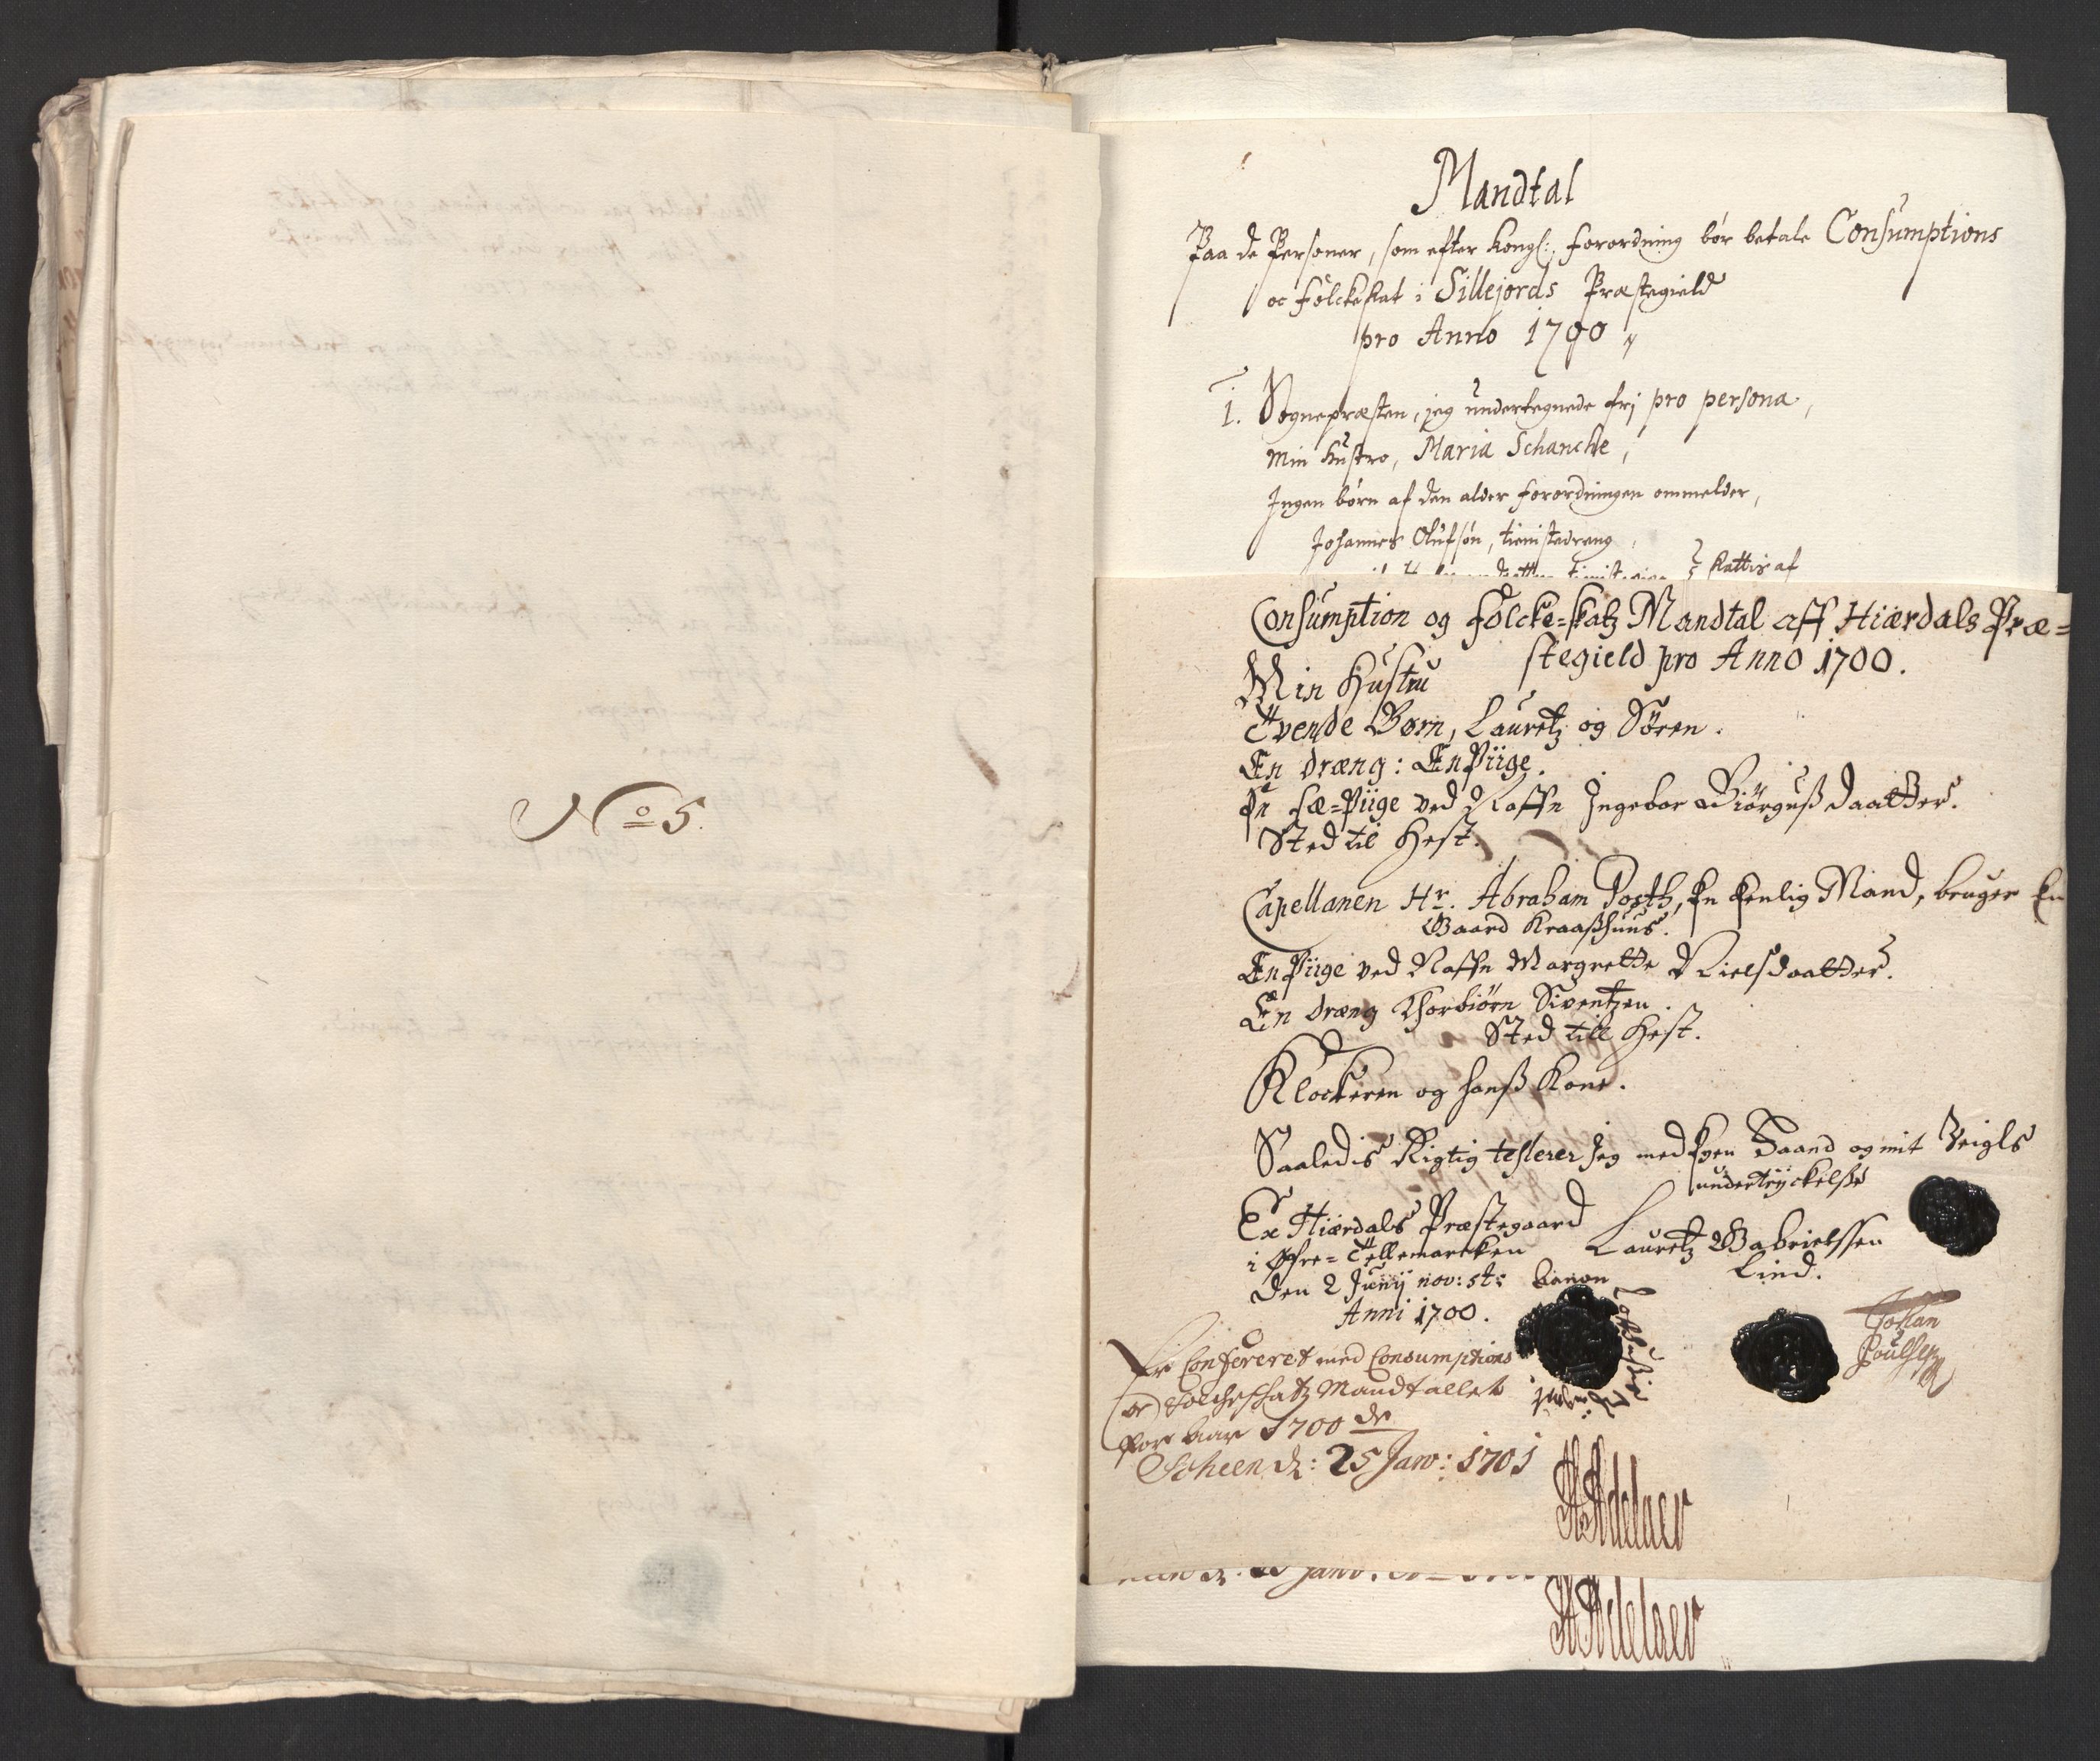 No 5.
Mandtal
Paa de Personer, som efter Kongl: forordning bør betale Consumptions
oc folckeskat i Sillejords Præstegield
pro Anno 1700
1. Sognepræsten, jeg undertegnede frj pro persona,
Min Hustro, Maria Schanche,
Ingen børn af den alder forordningen ommelder,
Johannes Olufsøn, tienistedreng
Skattis af
Consumption og folcke=skatz Mandtal aff Hiærdals Præ=
stegield pro Anno 1700.
Min Hustru
Tvende Børn, Lauretz og Sören.
En dræng: En Piige.
En fæ=Piige ved Naffn Ingebor Biörguß daatter.
Sted til Hest.
Capellanen Hr. Abraham Posth, En Eenlig Mand, bruger En
Gaard Kraaßhuus.
En Piige ved Naffn Margrette Nielsdaatter.
En dræng Thorbiørn Siventzen.
Sted till Hest.
Klockeren og hanß Kone.
Saaledis Rigtig testerer Jeg med Egen Haand og mit Zeigls
undertryckelße
Ex Hiærdals Præstegaard
i Øfre=Tellemarcken
den 2 Junij nov: st:
Anni 1700.
Lauretz Gabrielssen
Lind.
Johan
Poulsen
Er Confereret med Consumptions
oc Folcheschatz Mandtallet
for Aar 1700 de
Scheen d: 25 Janv: 1701
H Adelaer
H Adelaer